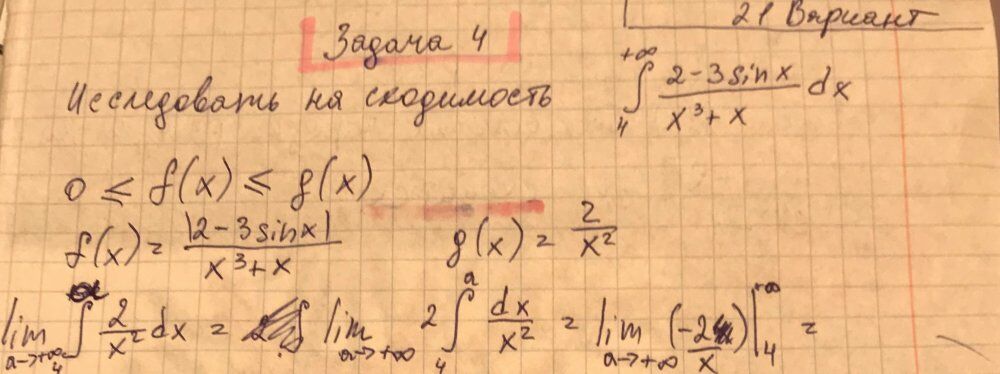 21 Вариант
Задача 4
Исследовать на сходимость ∫₄^{+∞} (2-3sinx)/(x³+x) dx
0 ≤ f(x) ≤ g(x)
f(x) = |2-3sinx|/(x³+x) g(x) = 2/x²
lim_{a→+∞} ∫₄^a 2/x² dx = lim_{a→+∞} 2∫₄^a dx/x² = lim_{a→+∞} (-2/x)|₄^{+∞} =